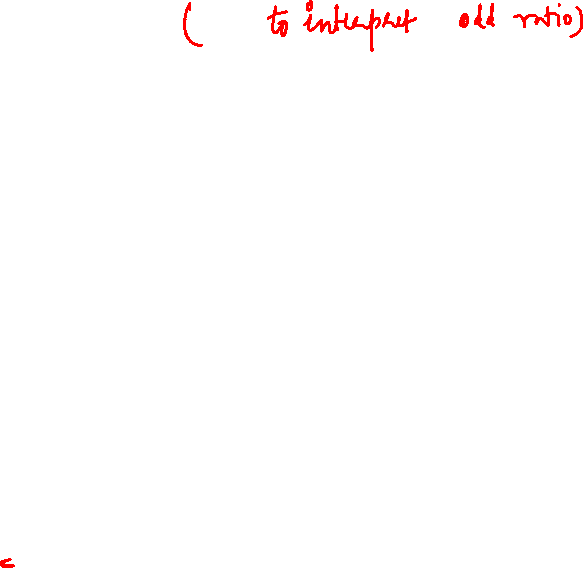 ( to interpret odd ratio)